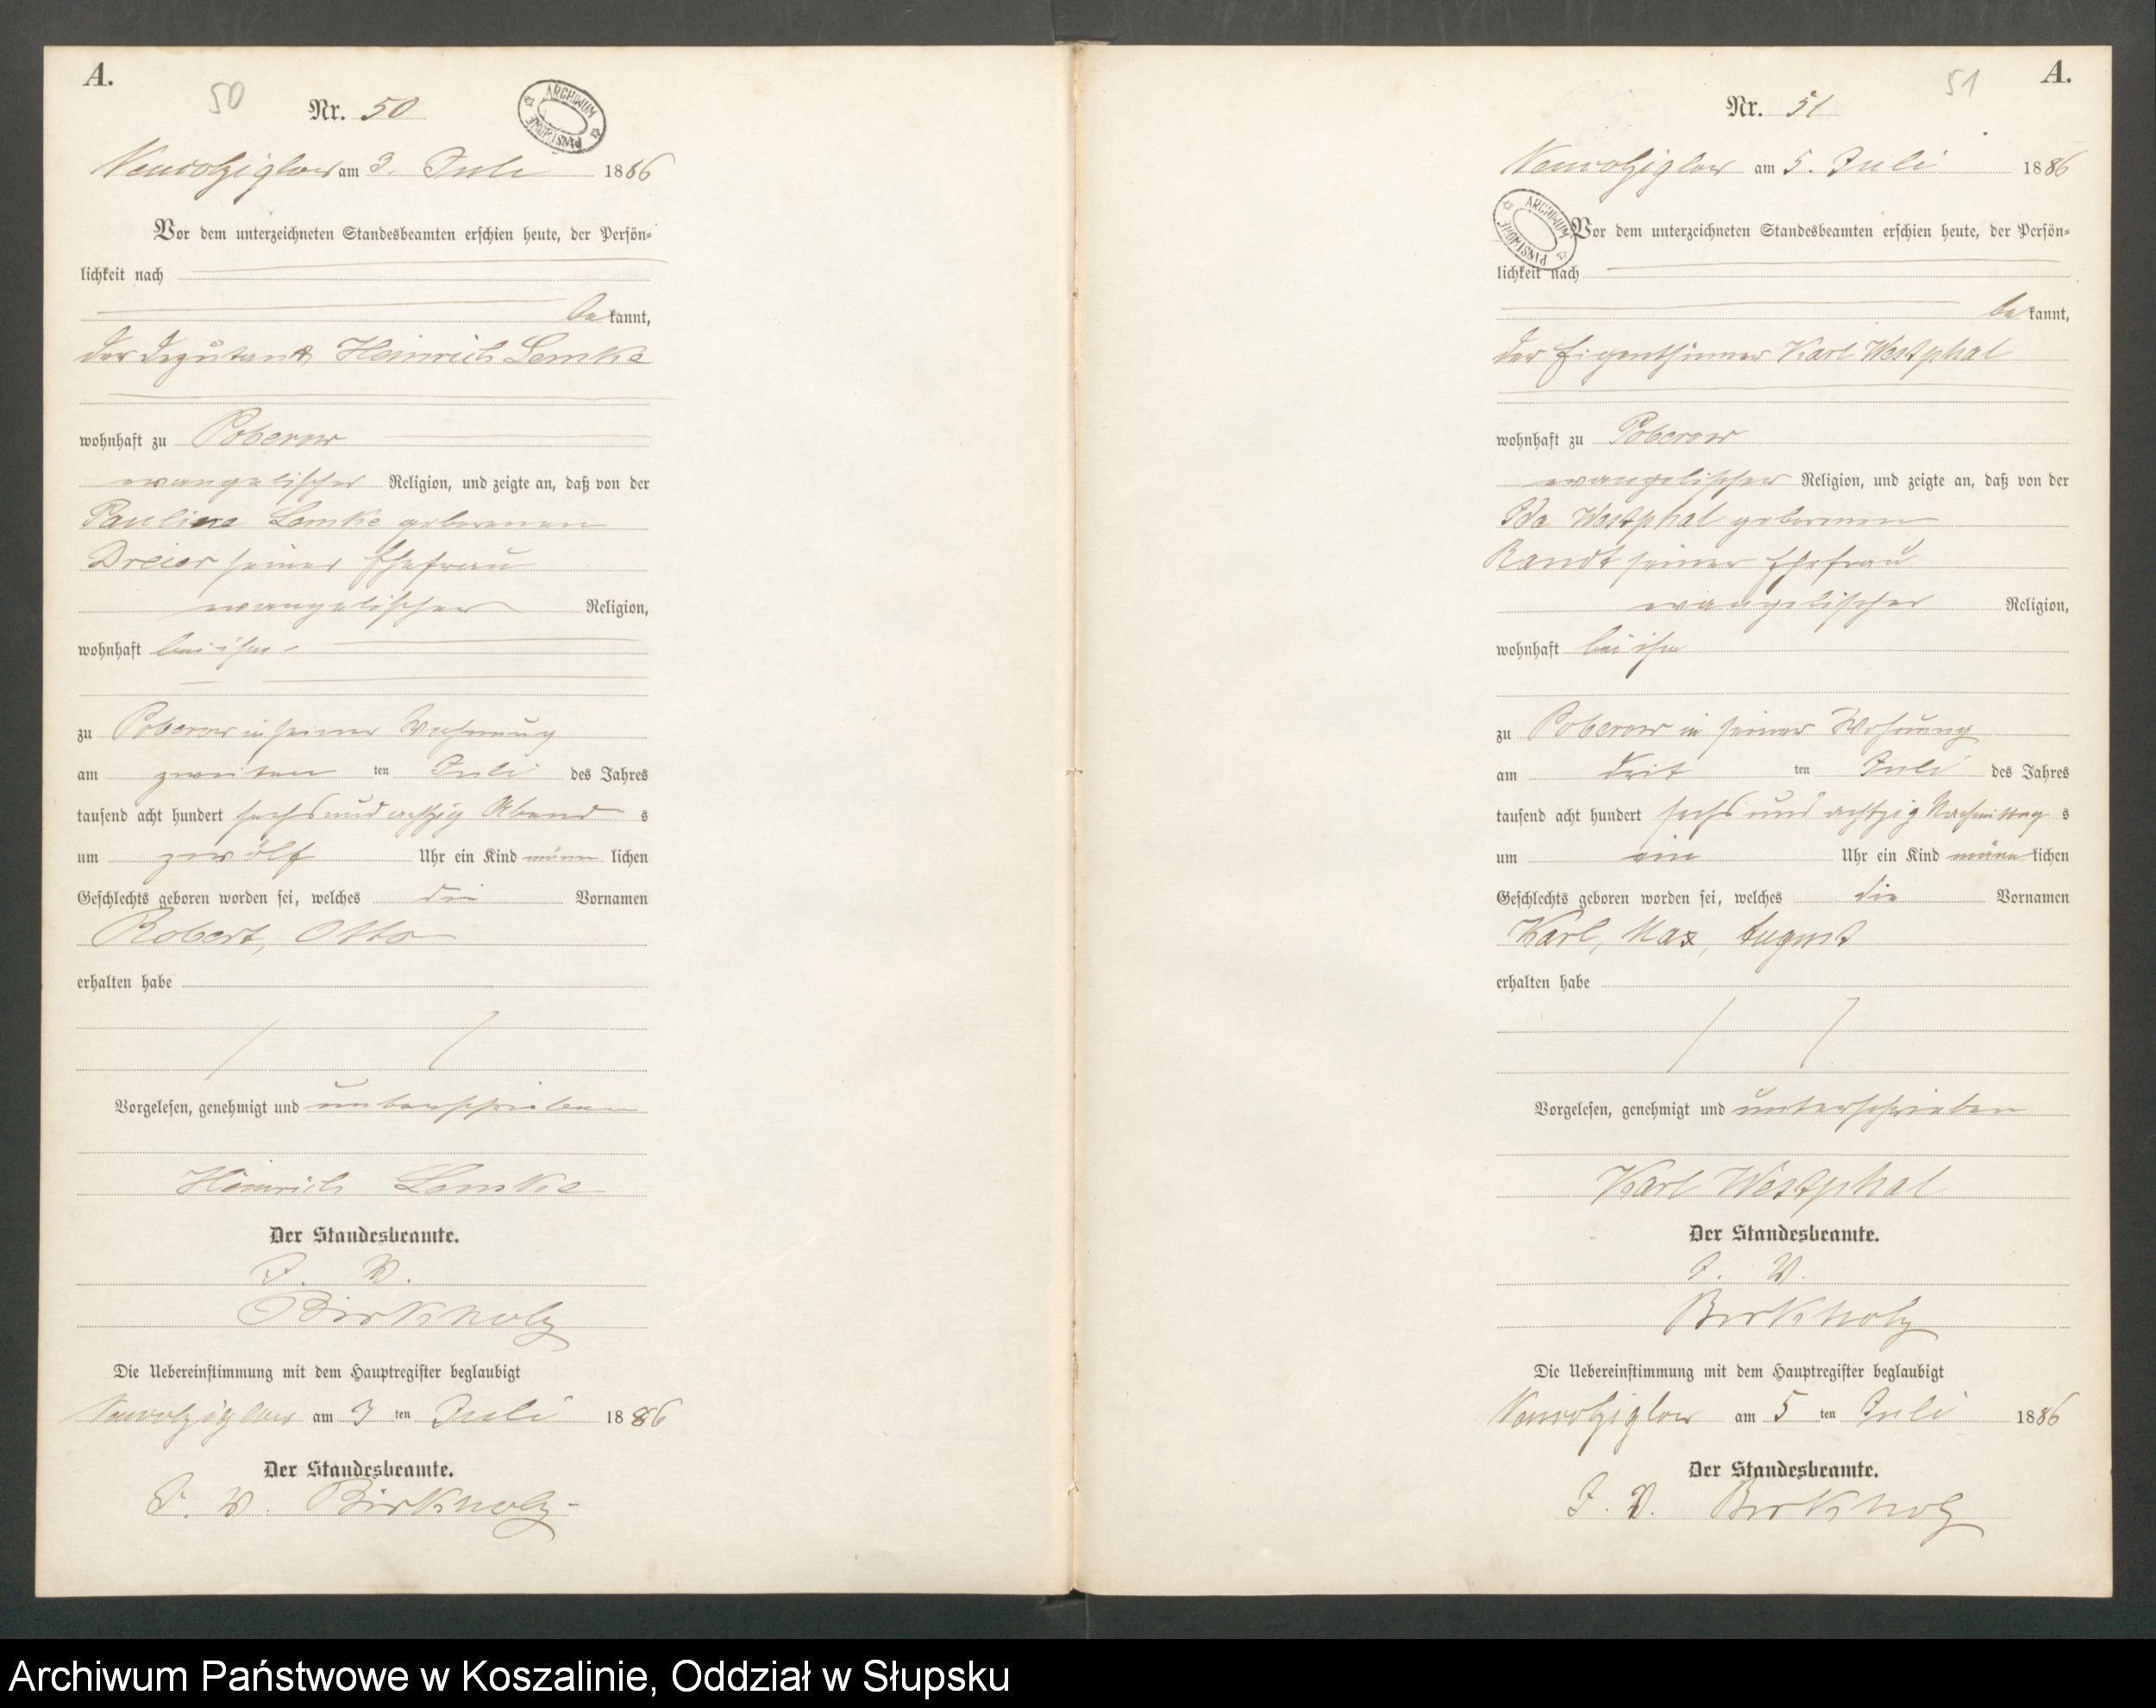 A.
50
Nr. 50
ARCHIWUM
PAŃSTWOWE
Neuwolziglow am 3. Juli 1886
Vor dem unterzeichneten Standesbeamten erschien heute, der Persön=
lichkeit nach
bekannt,
der Deputant Heinrich Lemke
wohnhaft zu Poberow
evangelischer Religion, und zeigte an, daß von der
Pauline Lemke geborenen
Dreier seiner Ehefrau
evangelischer Religion,
wohnhaft bei ihm
zu Poberow in seiner Wohnung
am zweiten ten Juli des Jahres
tausend acht hundert sechs und achtzig Abend s
um zwölf Uhr ein Kind männ lichen
Geschlechts geboren worden sei, welches die Vornamen
Robert, Otto
erhalten habe
Vorgelesen, genehmigt und unterschrieben
Heinrich Lemke
Der Standesbeamte.
J. V.
Birkholz
Die Uebereinstimmung mit dem Hauptregister beglaubigt
Neuwolziglow am 3 ten Juli 1886
Der Standesbeamte.
J. V. Birkholz
51
A.
Nr. 51
Neuwolziglow am 5. Juli 1886
ARCHIWUM
PAŃSTWOWE
Vor dem unterzeichneten Standesbeamten erschien heute, der Persön=
lichkeit nach
bekannt,
der Eigenthümer Karl Westphal
wohnhaft zu Poberow
evangelischer Religion, und zeigte an, daß von der
Ida Westphal geborenen
Randt seiner Ehefrau
evangelischer Religion,
wohnhaft bei ihm
zu Poberow in seiner Wohnung
am drit ten Juli des Jahres
tausend acht hundert sechs und achtzig Nachmittag s
um ein Uhr ein Kind männ lichen
Geschlechts geboren worden sei, welches die Vornamen
Karl, Max, August
erhalten habe
Vorgelesen, genehmigt und unterschrieben
Karl Westphal
Der Standesbeamte.
J. V.
Birkholz
Die Uebereinstimmung mit dem Hauptregister beglaubigt
Neuwolziglow am 5 ten Juli 1886
Der Standesbeamte.
J. V. Birkholz
Archiwum Państwowe w Koszalinie, Oddział w Słupsku